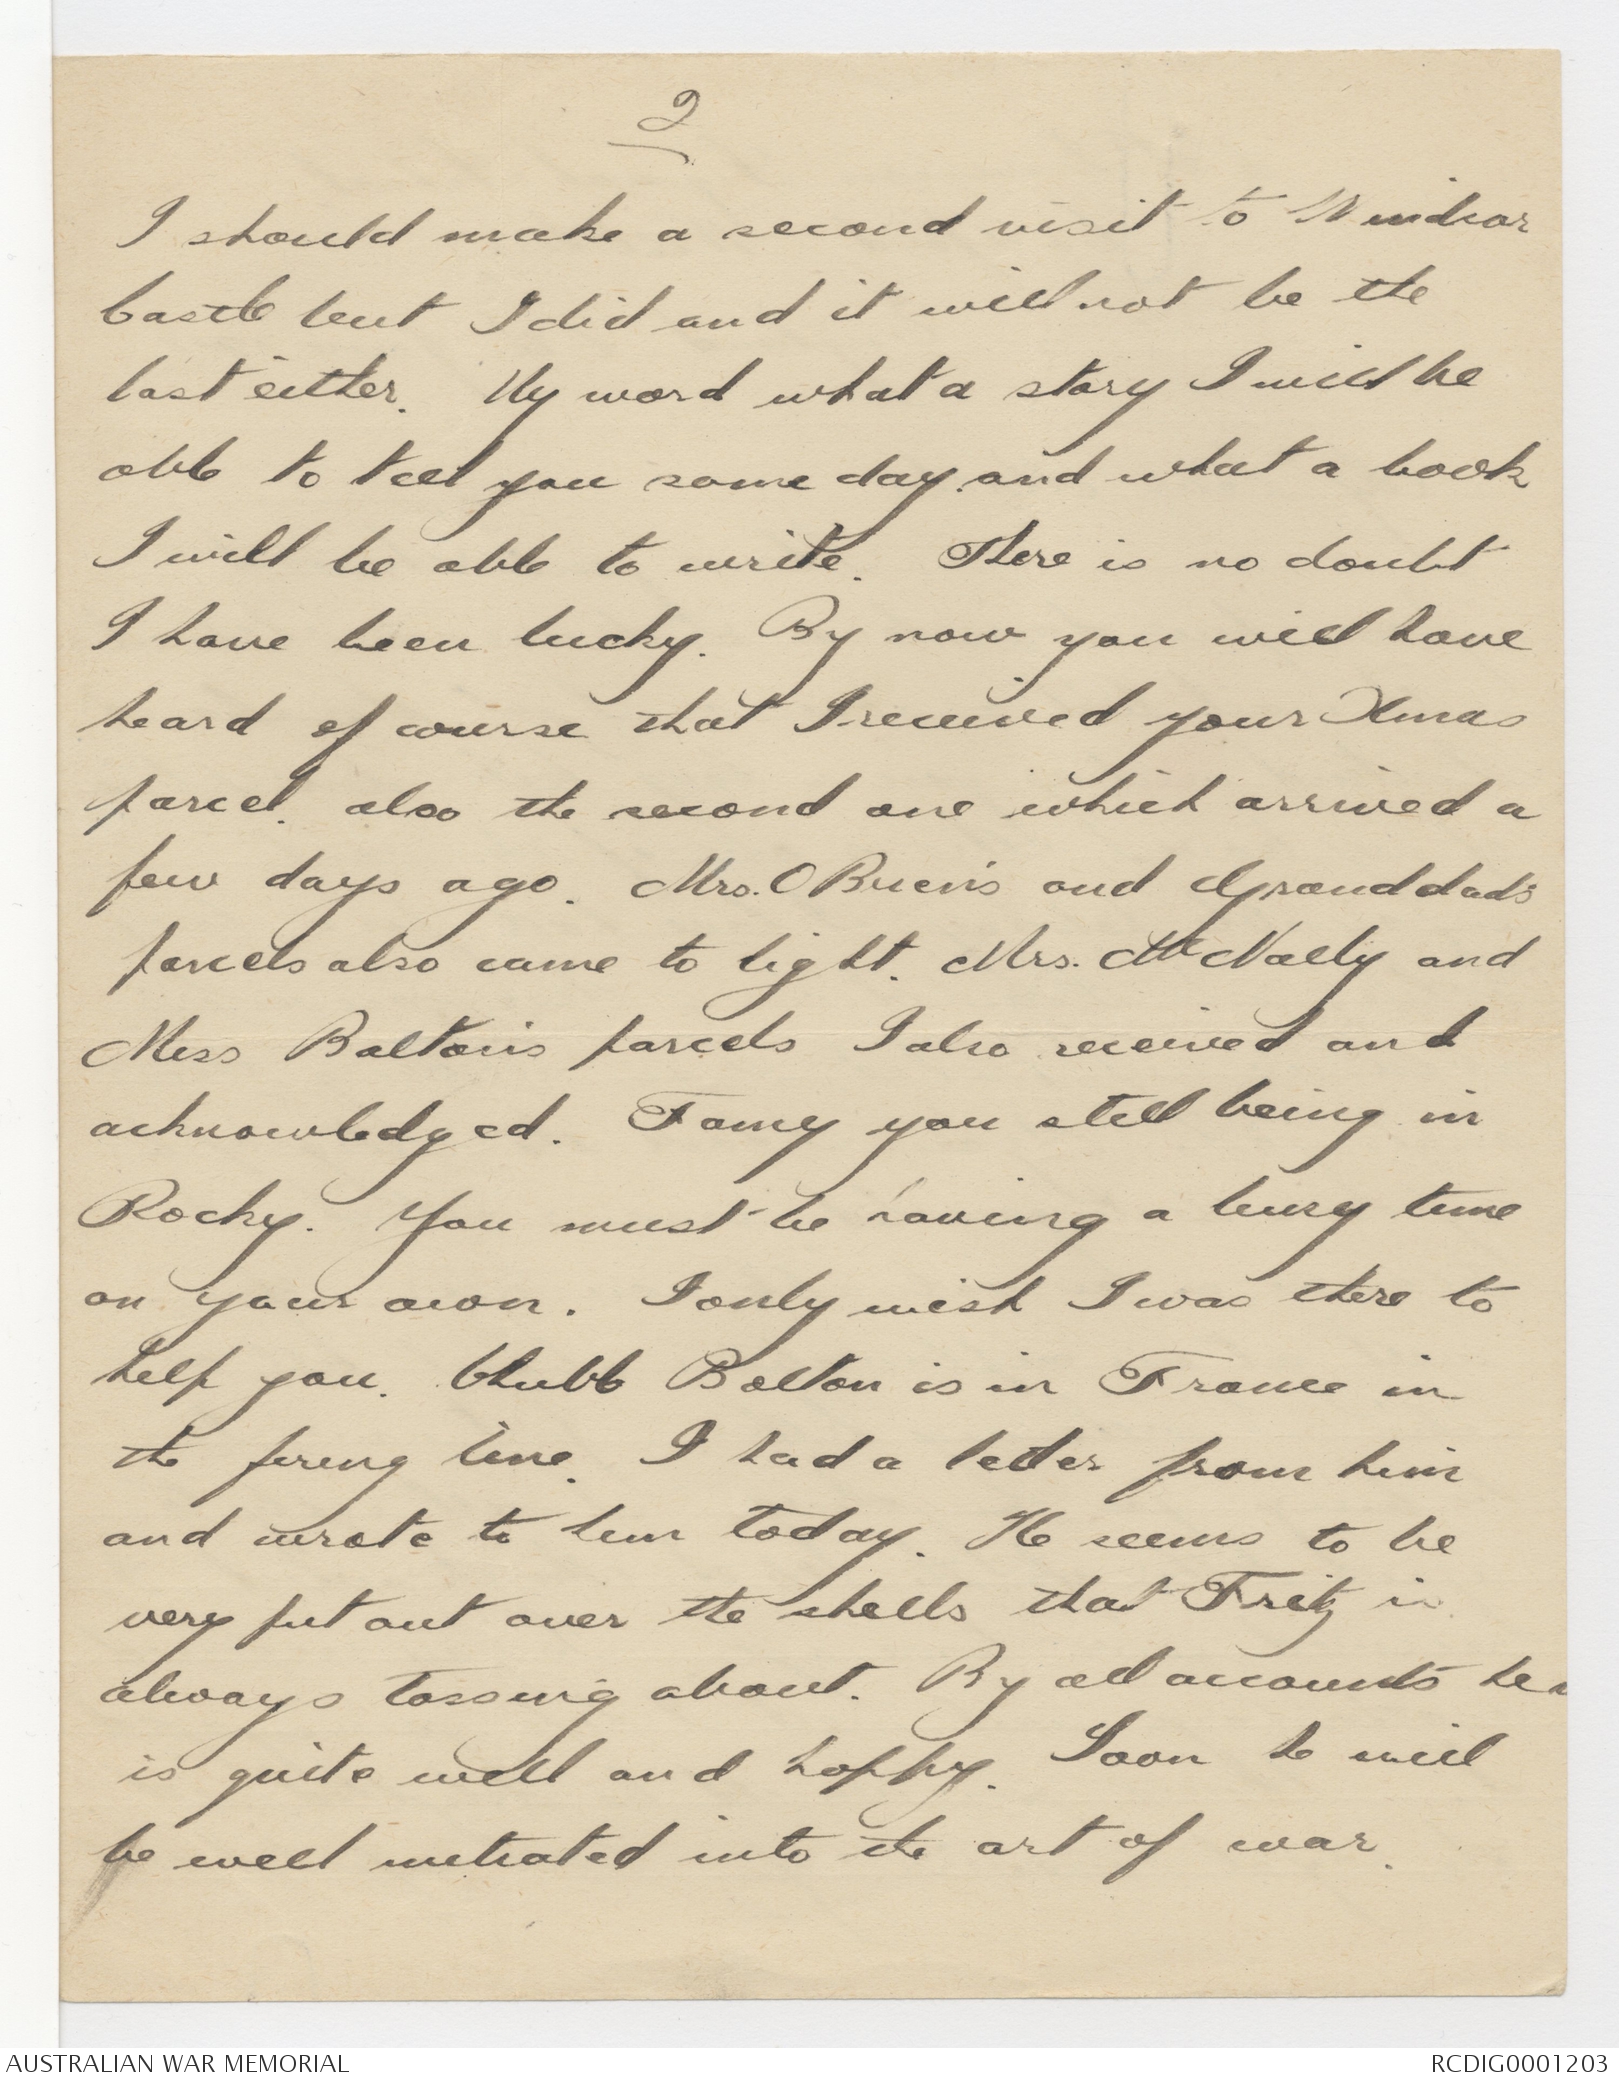 2
I should make a second visit to Windsor
Castle but I did and it will not be the
last either. My word what a story I will be
able to tell you some day and what a book
I will be able to write. There is no doubt
I have been lucky. By now you will have
heard of course that I received your Xmas
parcel. also the second one which arrived a
few days ago. Mrs. O'Brien's and Granddad's
parcels also came to light. Mrs. McNally and
Miss Bolton's parcels I also received and
acknowledged. Fancy you still being in
Rocky. You must be having a busy time
on your own. I only wish I was there to
help you. Chubb Bolton is in France in
the firing line. I had a letter from him
and wrote to him today. He seems to be
very put out over the shells that Fritz is
always tossing about. By all accounts he
is quite well and happy. Soon he will
be well initiated into the art of war.
AUSTRALIAN WAR MEMORIAL
RCDIG0001203